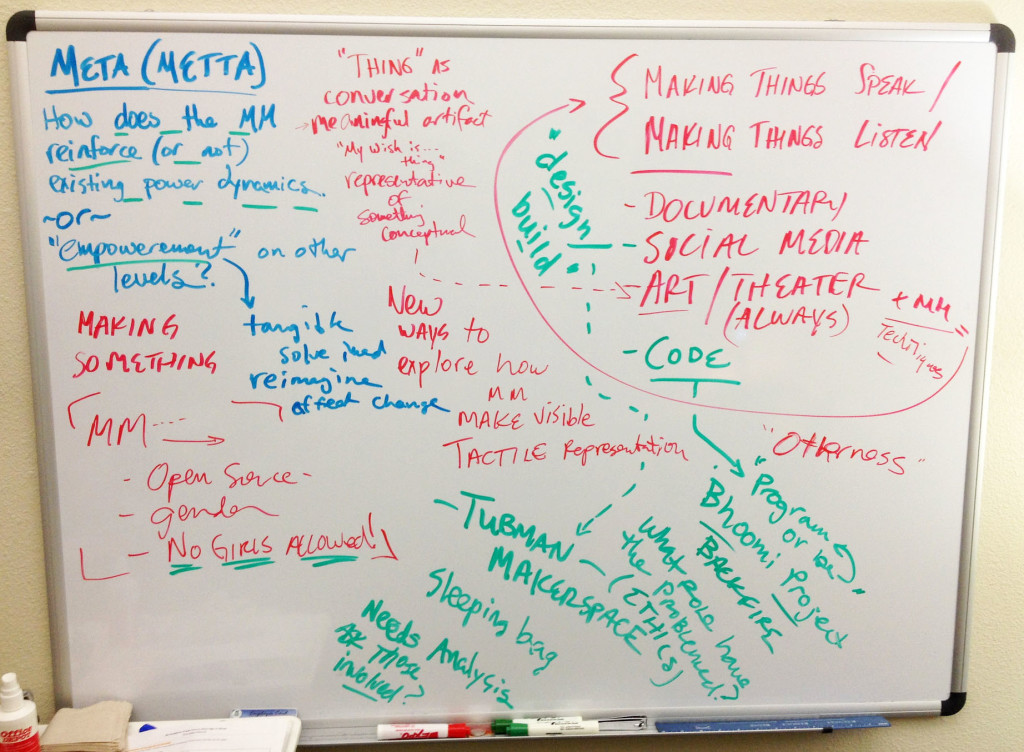 META (METTA)
How does the MM
reinforce (or not)
existing power dynamics.
~or~
"empowerment" on other
levels?
tangible
solve ined
reimagine
affect change
MAKING
SOMETHING
MM ....
- Open Source -
- gender
- NO GIRLS ALLOWED!
"THING" AS
conversation
meaningful artifact
"My wish is...
thing"
representative
of
something
conceptual
New
ways to
explore how
MM
MAKE Visible
TACTILE Representation
"design
build"
MAKING THINGS SPEAK /
MAKING THINGS LISTEN
- DOCUMENTARY
- SOCIAL MEDIA
- ART / THEATER
(ALWAYS)
+ MM =
Techniques
- CODE
"Otherness"
"Program
or be"
Bhoomi Project
BACKFIRE
What role have
the problemed?
- TUBMAN -
MAKERSPACE
(ETHICS)
Sleeping bag
Needs Analysis
Ask those
involved?
OFFICE
DEPOT
EXPO